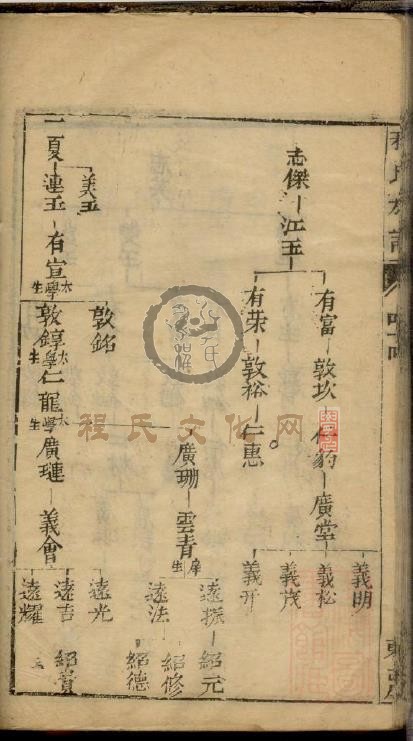 志傑
江玉
有富
敦坎
仁豹
廣堂
義明
義松
義茂
義开
有荣
敦裕
仁惠
二夏
美玉
連玉
有宣太學生
敦銘
敦錞太學生
仁龍太學生
廣珊
雲青庠生
遠振
紹元
遠法
紹修
紹德
廣璉
義會
遠光
遠吉
紹賁
遠耀
程氏文化网